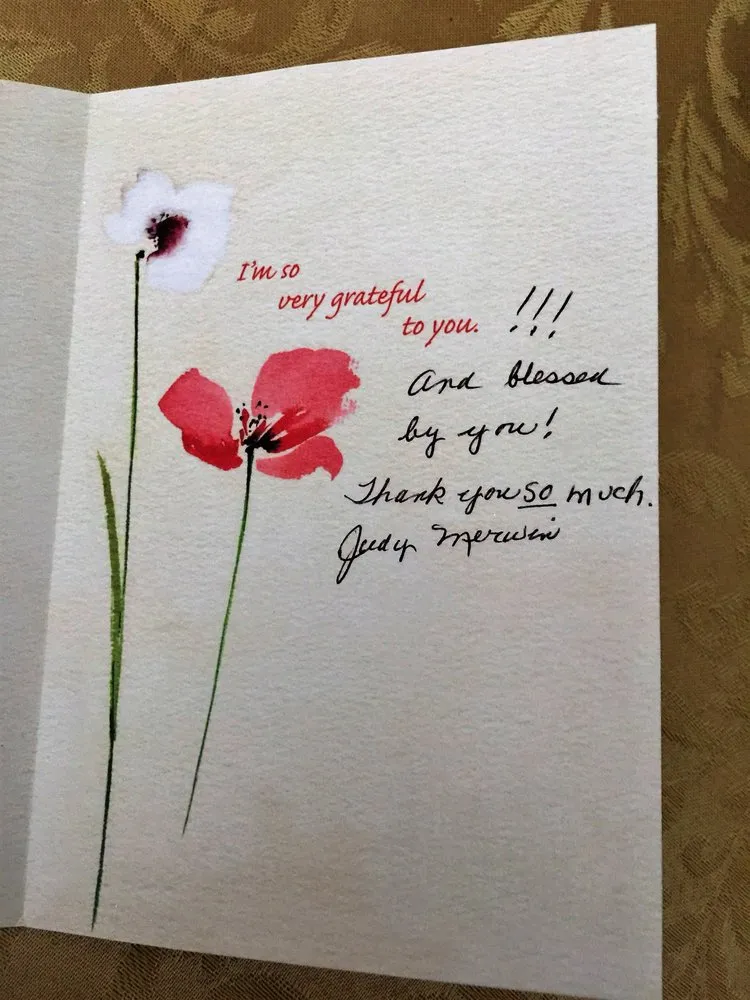 I'm so
very grateful
to you. !!!
And blessed
by you!
Thank you so much.
Judy Merwin